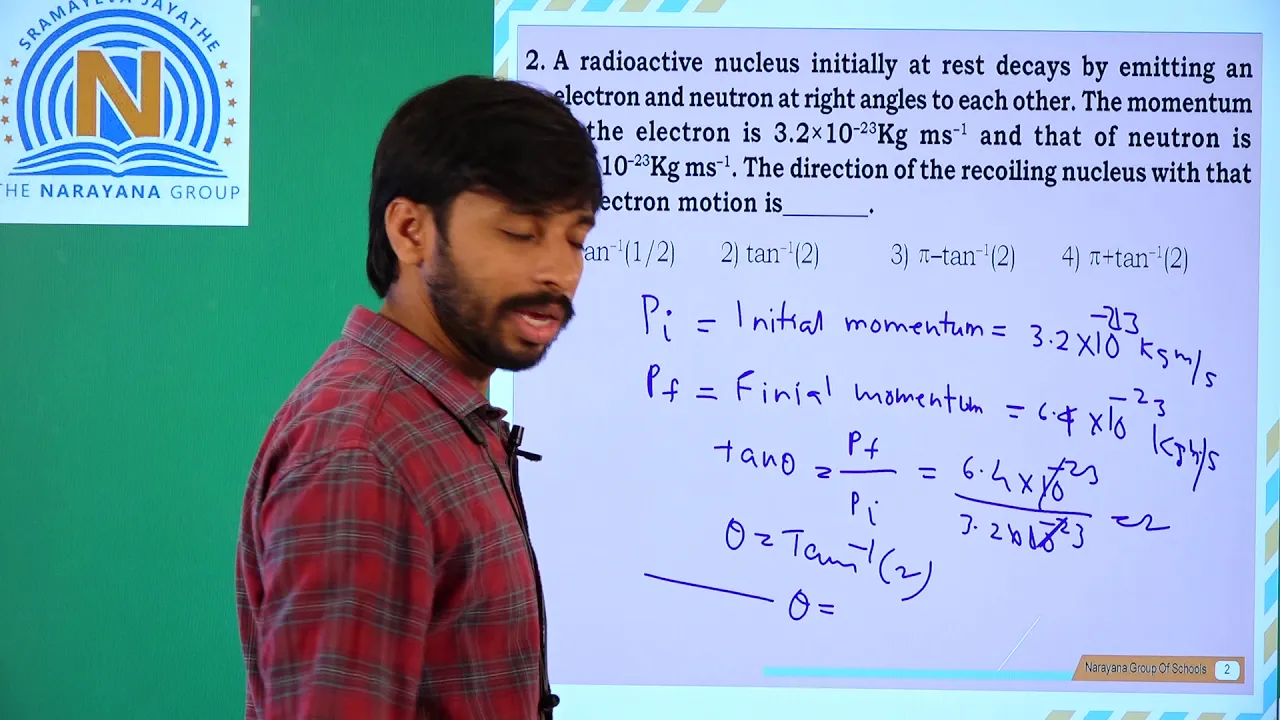 SRAMAYEVA JAYATHE
N
THE NARAYANA GROUP
2. A radioactive nucleus initially at rest decays by emitting an
electron and neutron at right angles to each other. The momentum
the electron is 3.2×10⁻²³Kg ms⁻¹ and that of neutron is
10⁻²³Kg ms⁻¹. The direction of the recoiling nucleus with that
ectron motion is______.
an⁻¹(1/2) 2) tan⁻¹(2) 3) π–tan⁻¹(2) 4) π+tan⁻¹(2)
Pi = Initial momentum = 3.2×10⁻²³ kgm/s
Pf = Finial momentum = 6.4 ×10⁻²³ kgm/s
tanθ = Pf / Pi = 6.4 × 10⁻²³ / 3.2×10⁻²³ = 2
θ = Tan⁻¹(2)
θ =
Narayana Group Of Schools 2